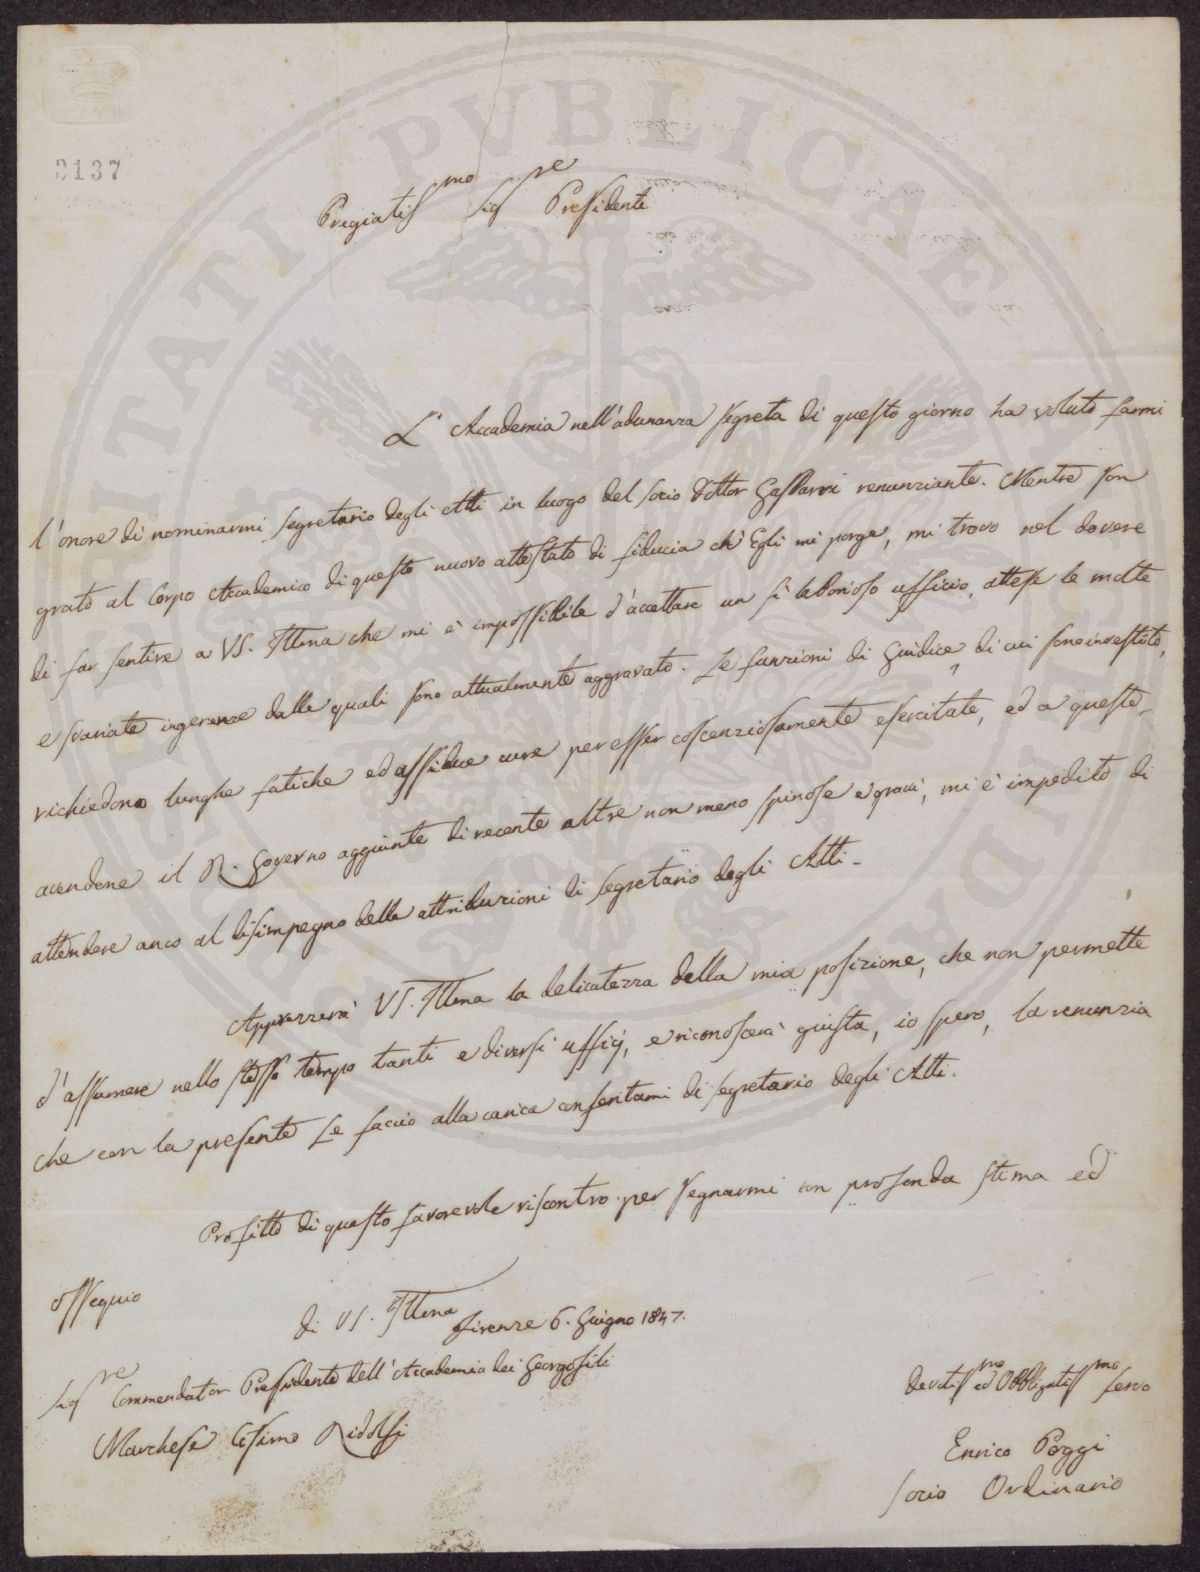 3137
Pregiatiss.mo Sig.re Presidente
L'Accademia nell'adunanza segreta di questo giorno ha voluto farmi
l'onore di nominarmi segretario degli Atti in luogo del socio Dottor Gasparri renunziante. Mentre son
grato al Corpo Accademico di questo nuovo attestato di fiducia ch'Egli mi porge, mi trovo nel dovere
di far sentire a VS. Illma che mi è impossibile d'accettare un sì laborioso ufficio, attese le molte
e svariate ingerenze dalle quali sono attualmente aggravato. Le funzioni di Giudice, di cui sono investito,
richiedono lunghe fatiche ed assidue cure per esser coscenziosamente esercitate, ed a queste
avendone il R. Governo aggiunte di recente altre non meno spinose e gravi, mi è impedito di
attendere anco al disimpegno delle attribuzioni di segretario degli Atti.
Apprezzerà VS. Illma la delicatezza della mia posizione, che non permette
d'assumere nello stesso tempo tanti e diversi ufficj, e riconoscerà giusta, io spero, la renunzia
che con la presente Le faccio alla carica conferitami di segretario degli Atti.
Profitto di questo favorevole riscontro per segnarmi con profonda stima ed
ossequio
di VS. Illma
Firenze 6. Giugno 1847.
Sig.re Commendator Presidente dell'Accademia dei Georgofili
Marchese Cosimo Ridolfi
Devotiss.mo ed Obbligatiss.mo servo
Enrico Poggi
socio Ordinario
PROSPERITATI PUBLICAE AUGENDAE